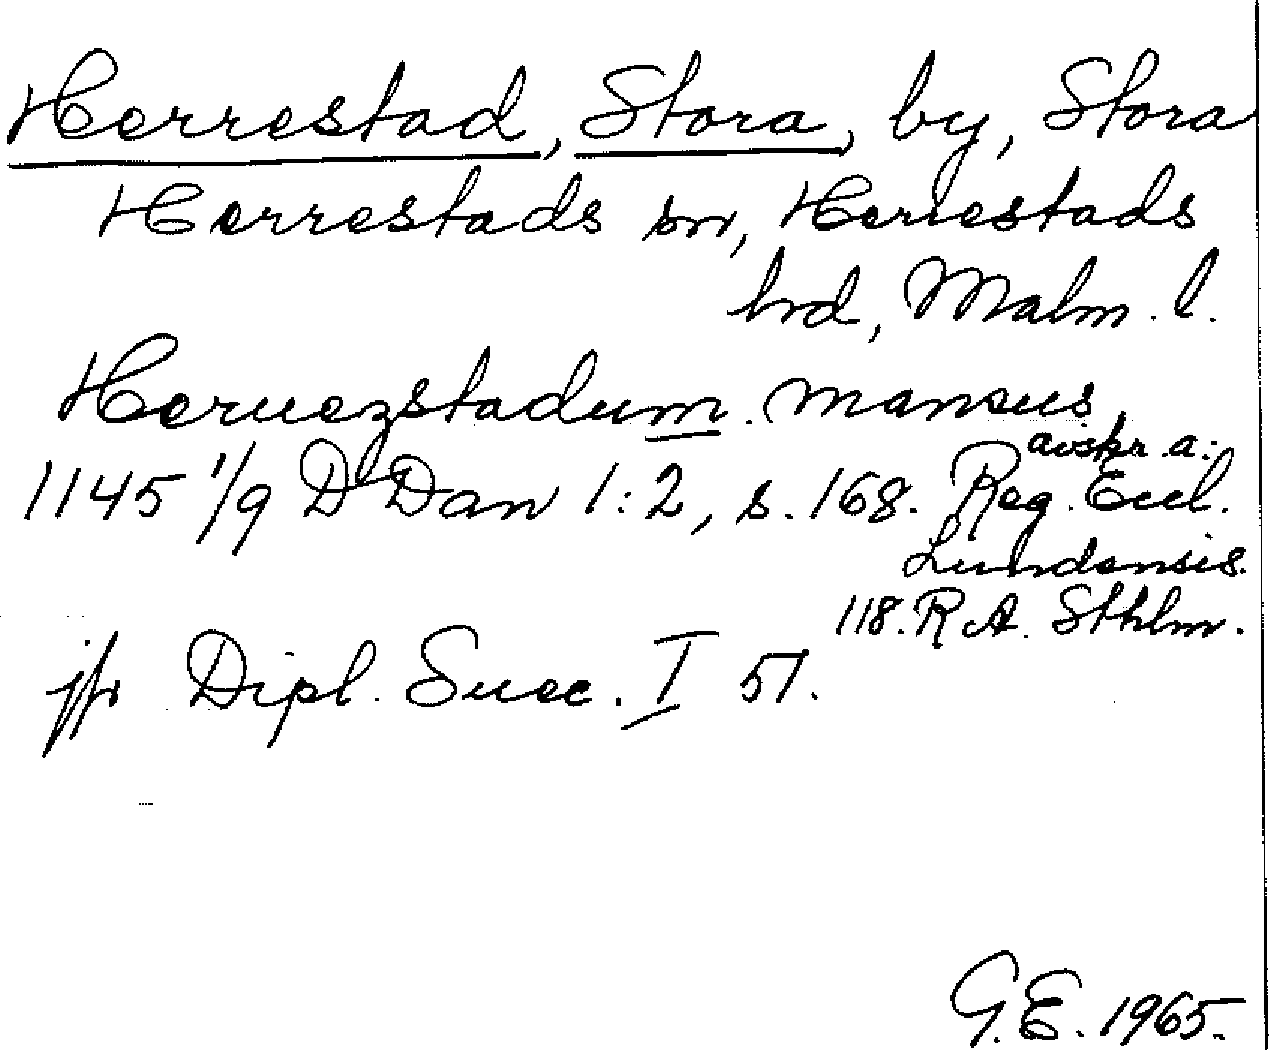 Herrestad, Stora, by, Stora
Herrestads sn, Herrestads
hrd, Malm. l.
Heruezstadum. mansus,
avskr. a:
1145 1/9 D Dan 1:2, s. 168. Reg. Eccl.
Lundensis.
118. R.A. Sthlm.
jfr Dipl. Suec. I 51.
G.E. 1965.